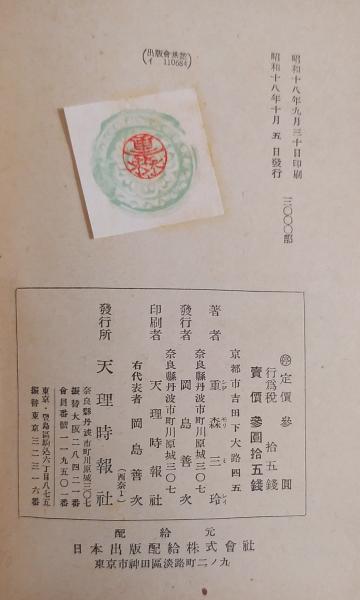 昭和十八年九月三十日印刷
昭和十八年十月五日發行
三〇〇〇部
(出版會承認
イ110684)
重森
㊝定價 參圓
行爲稅 拾五錢
賣價 參圓拾五錢
京都市吉田下大路四五
著者 重森三玲
シゲ モリ ミ レイ
奈良縣丹波市町川原城三〇七
發行者 岡島善次
奈良縣丹波市町川原城三〇七
印刷者 天理時報社
右代表者 岡島善次
(西奈1)
發行所 天理時報社
奈良縣丹波市町川原城三〇七
振替大阪二八四二一番
會員番號一一九五〇一番
東京・豐島區駒込六丁目八七五
振替東京三二三一六番
配給元
日本出版配給株式會社
東京市神田區淡路町二ノ九